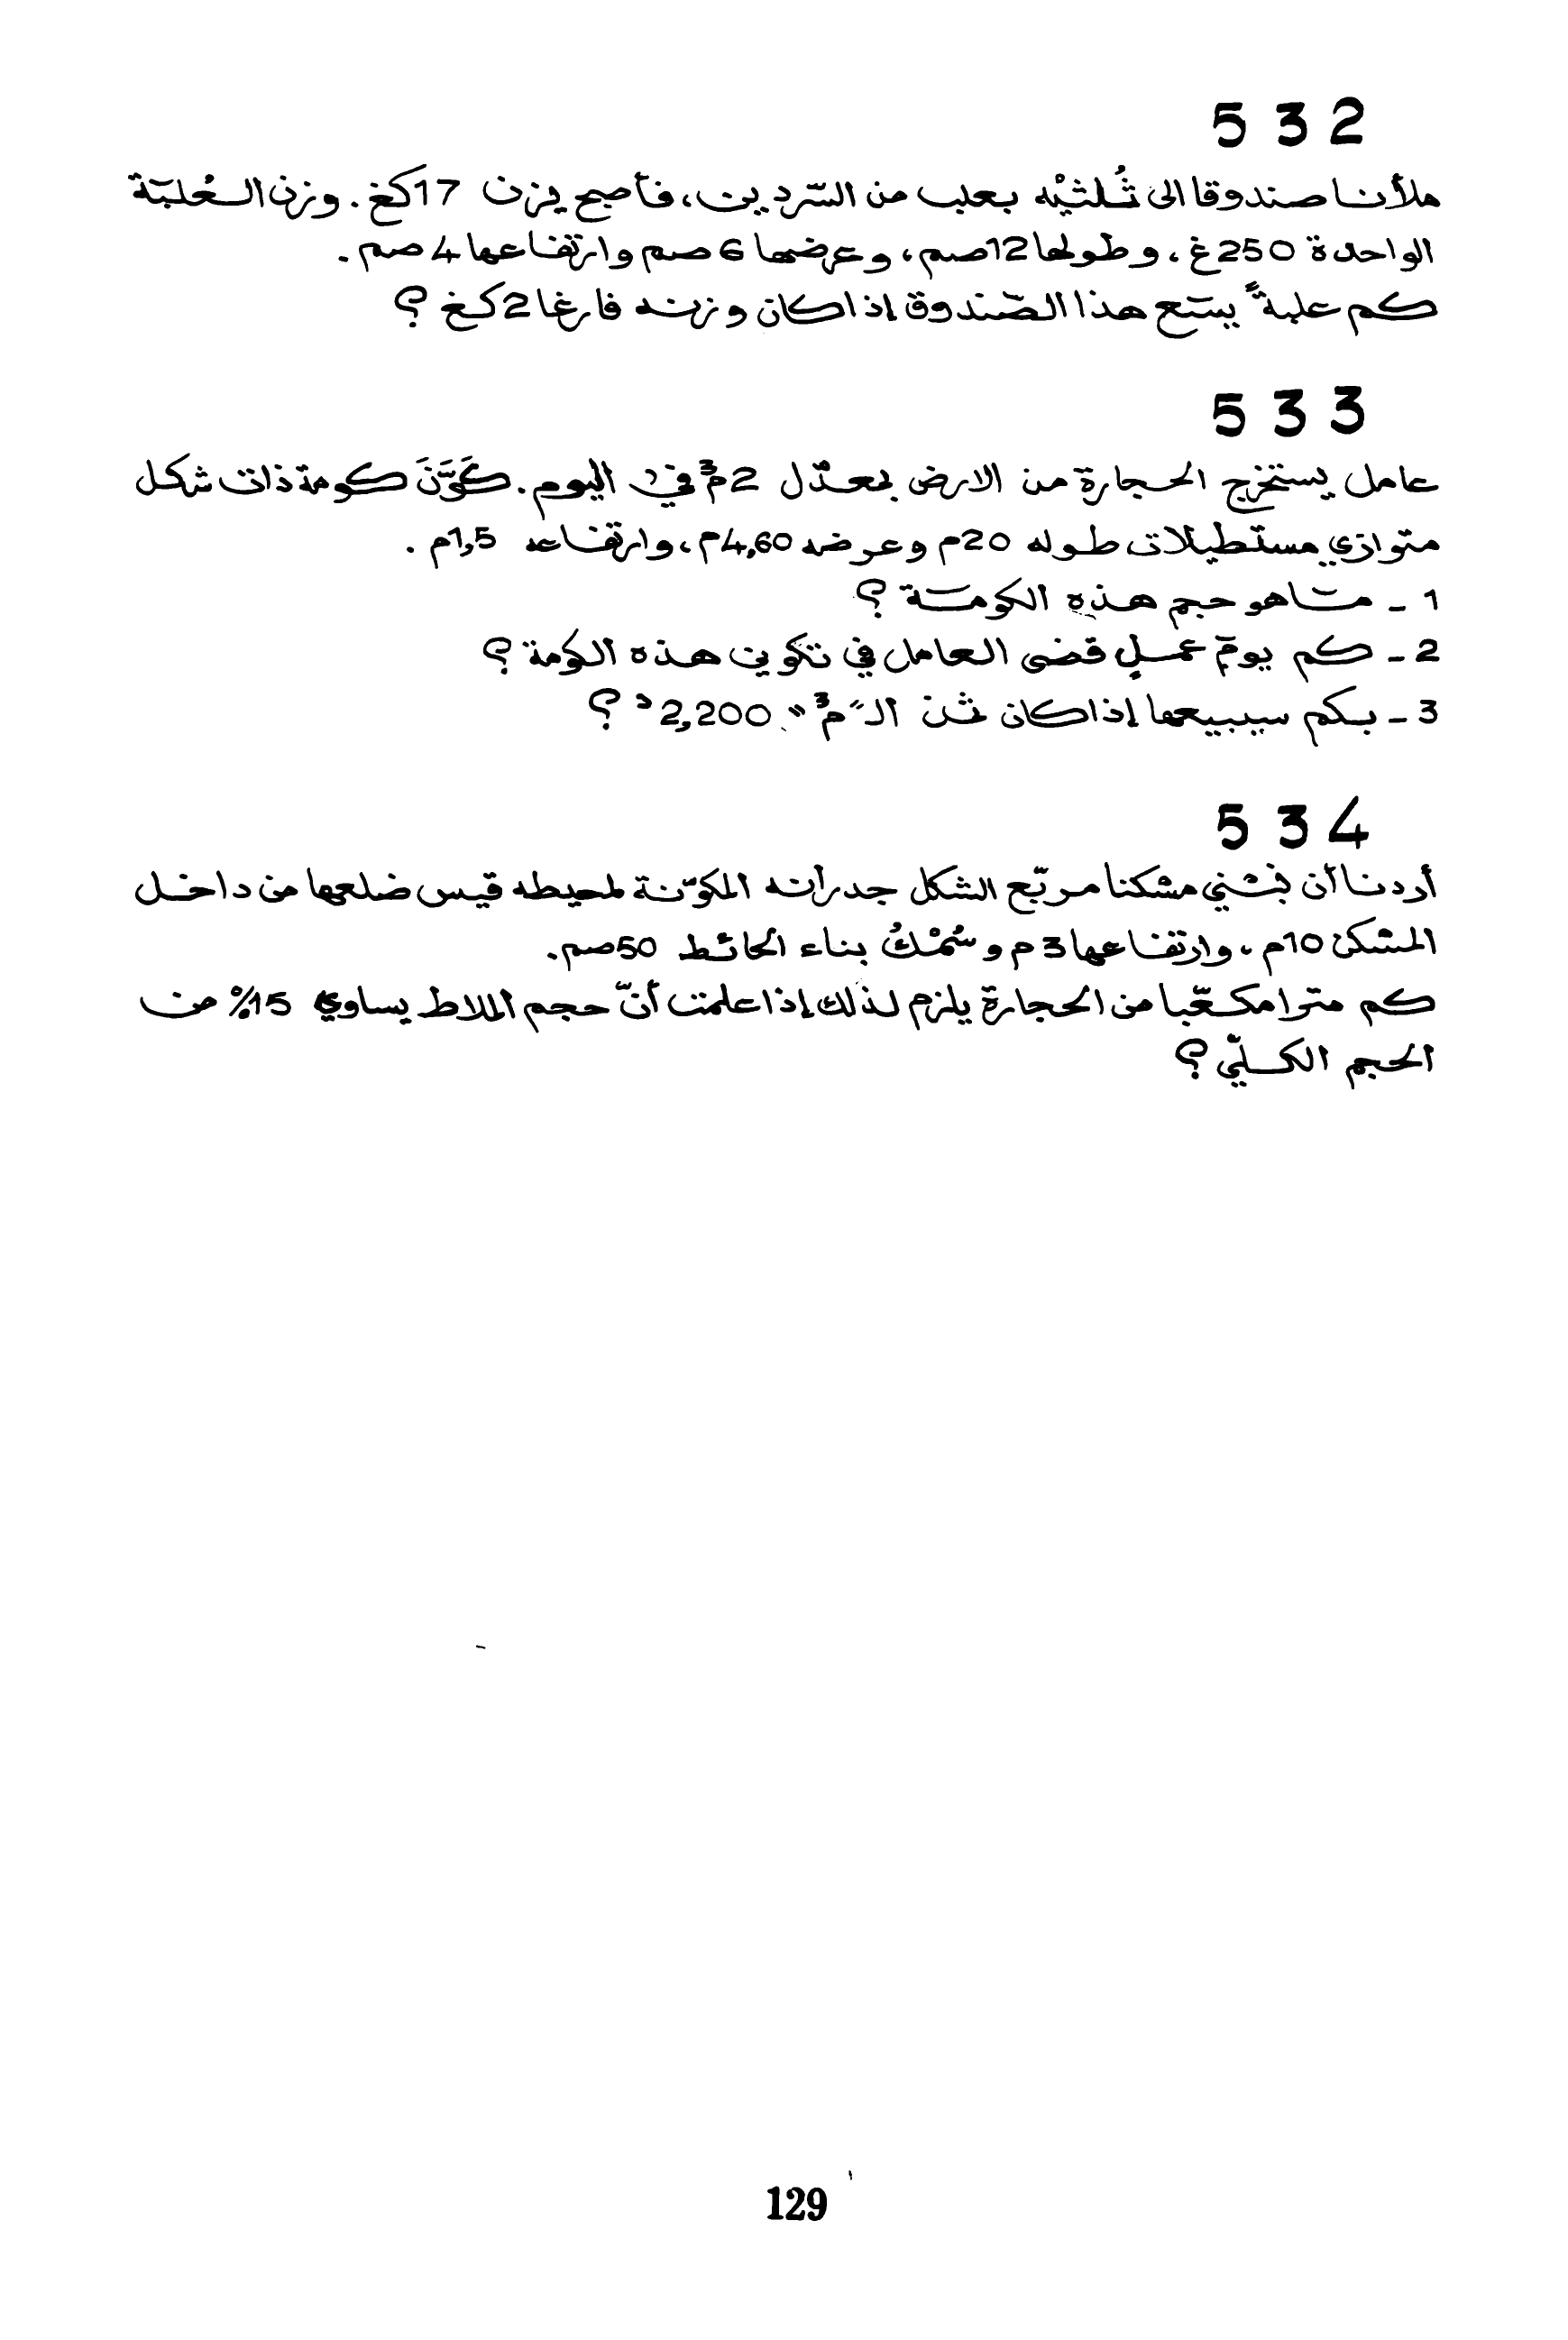 532
ملأنا صندوقا الى ثُلثيْه بعلب من السّردين، فأصبح يزن 17كغ. وزن العُلبة
الواحدة 250غ، وطولها 12صم، وعرضها 6 صم وارتفاعها 4 صم.
كم علبةً يسع هذا الصّندوق إذا كان وزنه فارغا 2 كغ؟
533
عامل يستخرج الحجارة من الارض بمعدّل 2م³ في اليوم. كَوَّنَ كومة ذات شكل
متوازي مستطيلات طوله 20م وعرضه 4,60م، وارتفاعه 1,5م.
1 - ما هو حجم هذه الكومة؟
2 - كم يومَ عملٍ قضى العامل في تكوين هذه الكومة؟
3 - بكم سيبيعها إذا كان ثمن الـ "م³" 2,200د؟
534
أردنا أن نبني مسكنا مربّع الشكل جدرانه المكوّنة لمحيطه قيس ضلعها من داخل
المسكن 10م، وارتفاعها 3م وسُمْكُ بناء الحائط 50صم.
كم مترا مكعّبا من الحجارة يلزم لذلك إذا علمت أنّ حجم الملاط يساوي 15% من
الحجم الكلّي؟
129